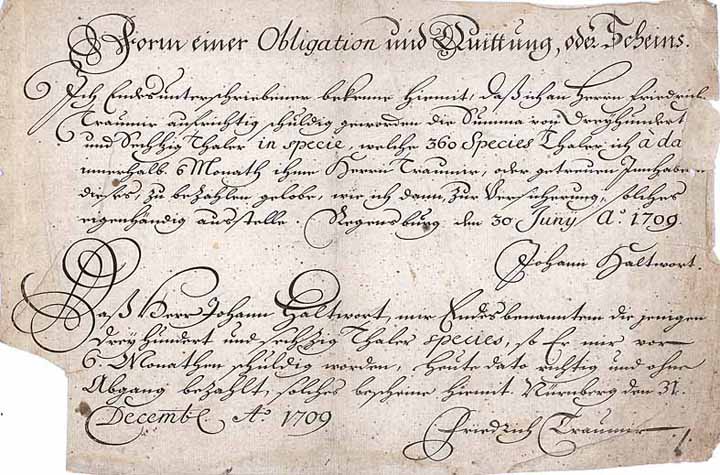 Form einer Obligation und Quittung, oder Scheins.
Ich Endesunterschriebener bekenne hiemit, daß ich an Herrn Friedrich
Traumir aufrichtig schuldig geworden die Summa von Dreyhundert
und Sechtzig Thaler in specie, welche 360 Species Thaler ich à da
innerhalb 6 Monath ihme Herrn Traumir, oder getreuen Innhaber
dieses, zu bezahlen gelobe, wie ich dann, zur Versicherung, solches
eigenhändig ausstelle. Regensburg den 30 Junij Aº 1709
Johann Haltwort.
Daß Herr Johann Haltwort, mir Endesbenanntem die jenigen
Dreyhundert und sechtzig Thaler species, so Er mir vor
6. Monathen schuldig worden, heute dato richtig und ohne
Abgang bezahlt, solches bescheine hiemit. Nürnberg den 31.
Decembr Aº 1709
Friedrich Traumir